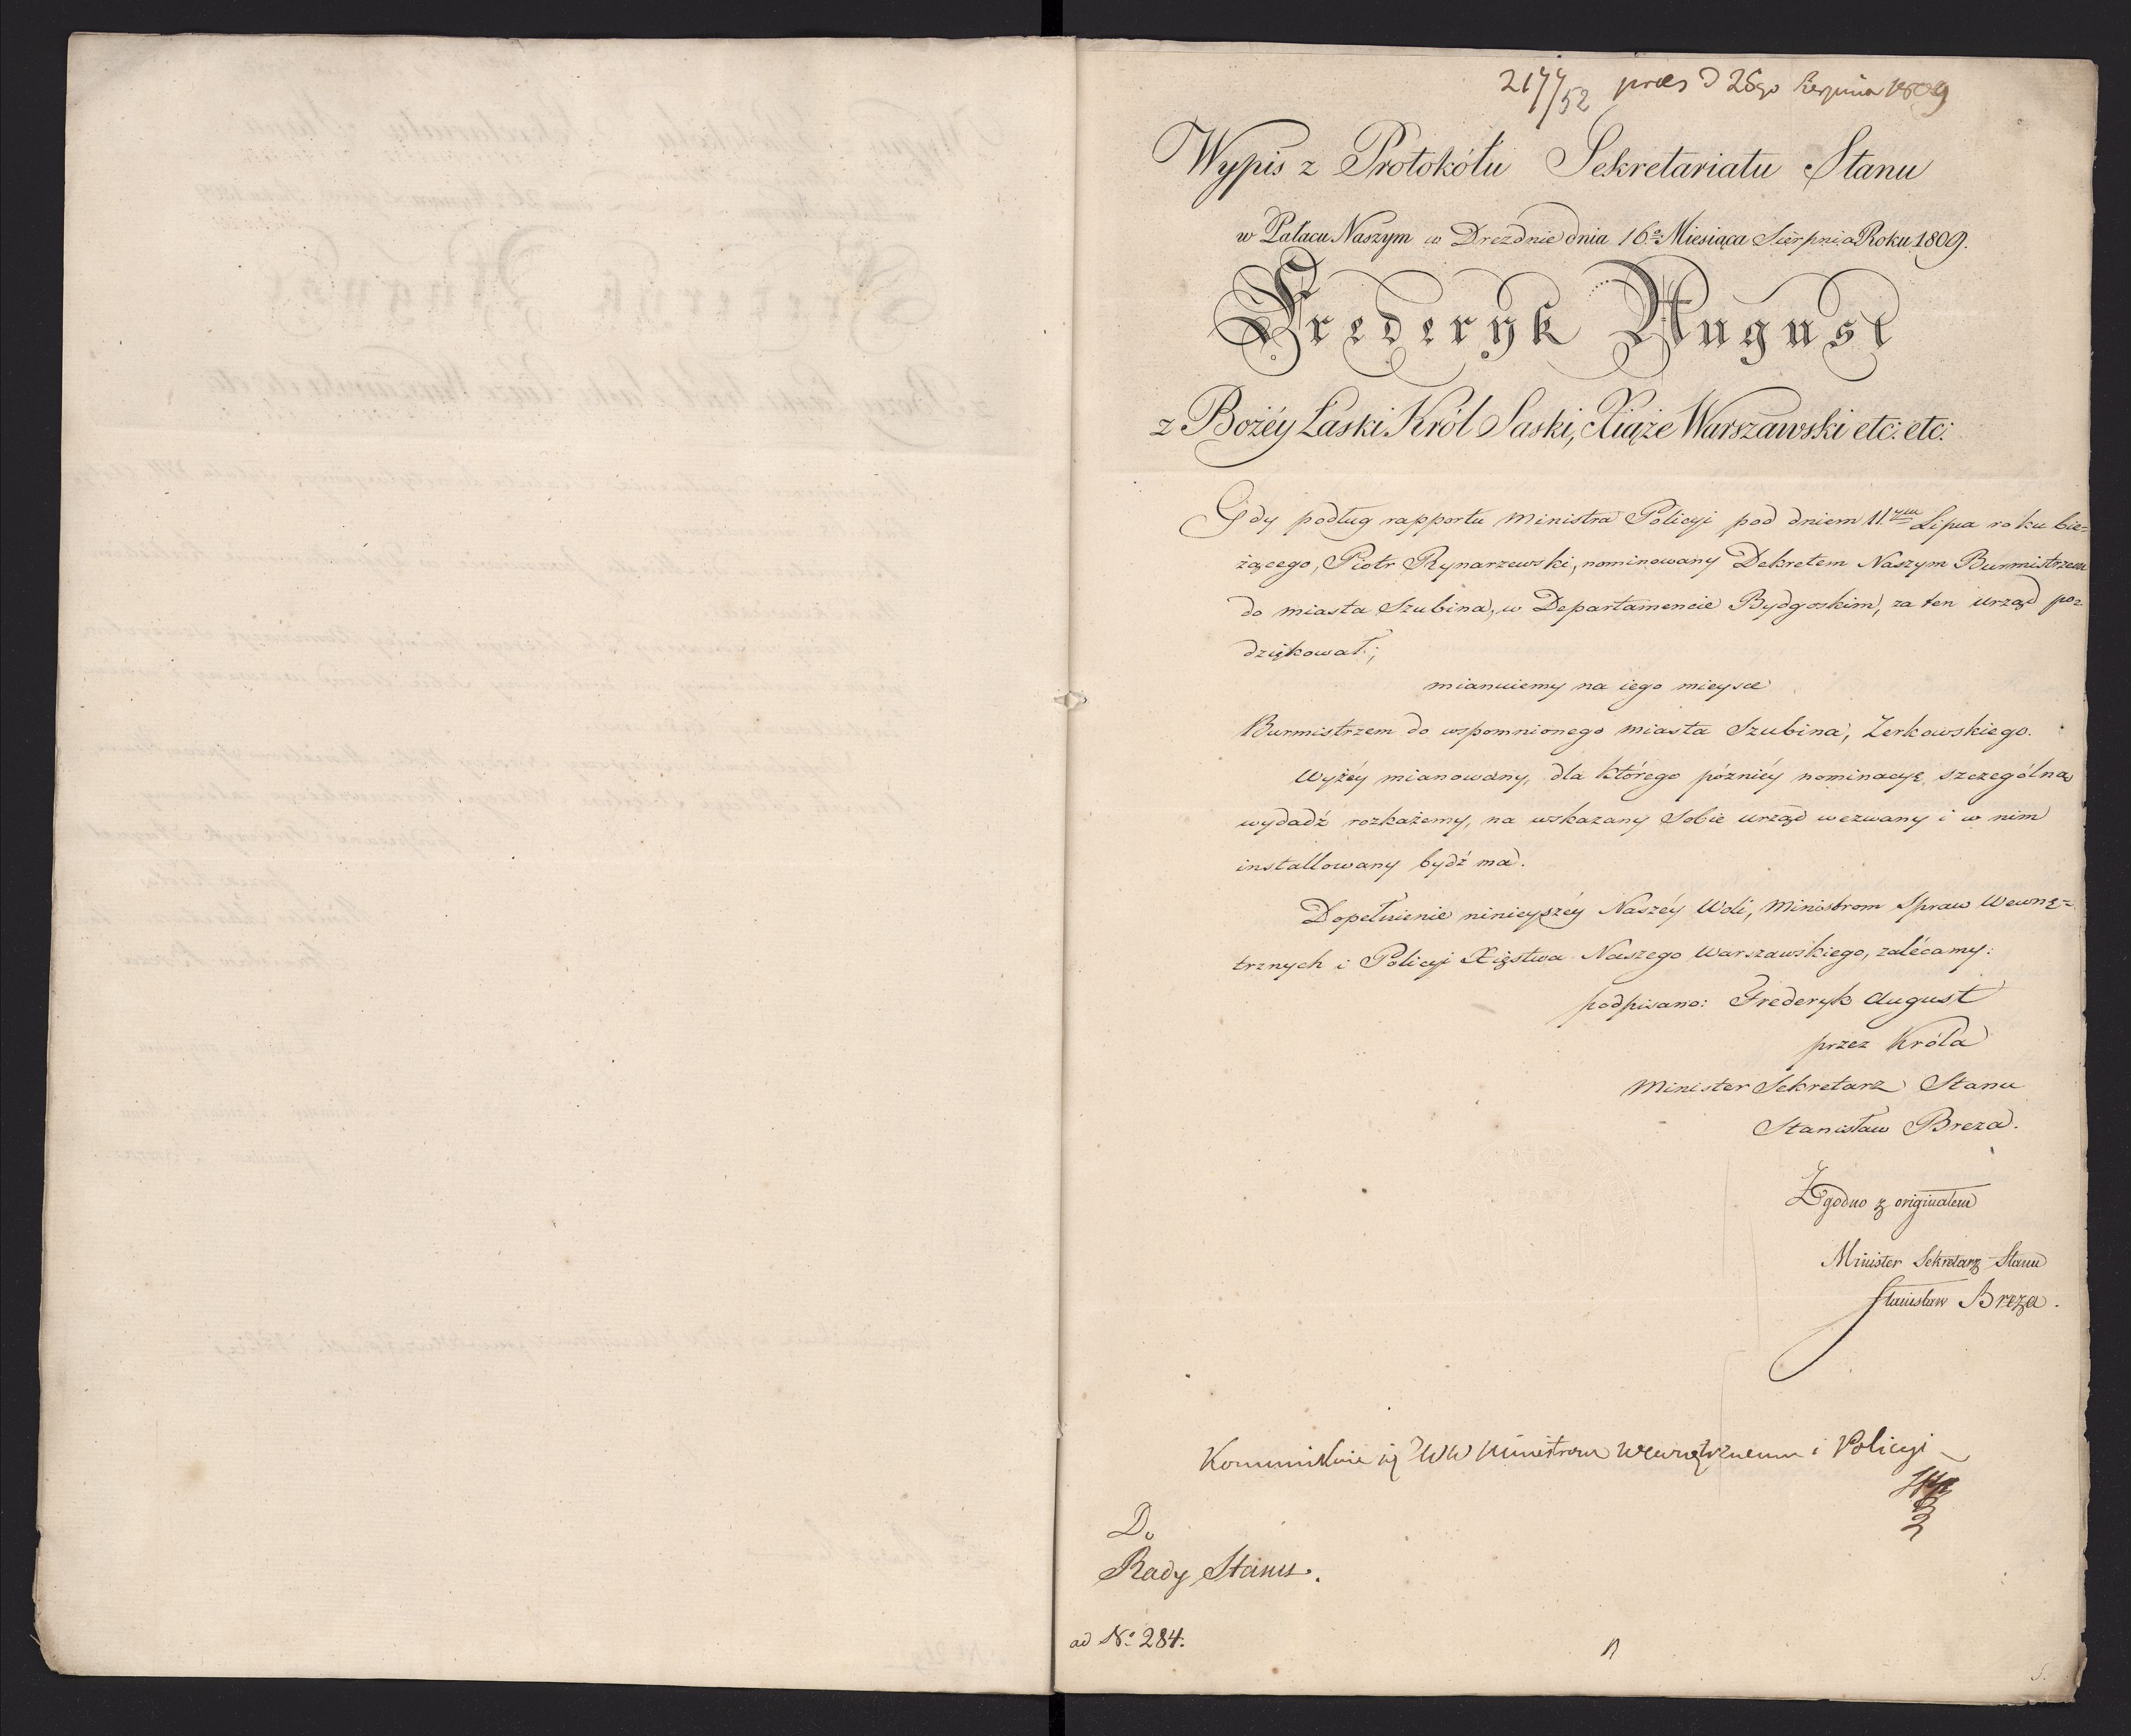 2177/52 praes d 26go Sierpnia 1809
Wypis z Protokółu Sekretariatu Stanu
w Pałacu Naszym w Dreznie dnia 16º Miesiąca Sierpnia Roku 1809.
Frederyk August
z Bożéy Łaski Król Saski, Xiąże Warszawski etc: etc:
Gdy podług rapportu Ministra Policyi pod dniem 11.ym Lipca roku bie=
żącego, Piotr Rynarzewski, nominowany Dekretem Naszym Burmistrzem
do miasta Szubina, w Departamencie Bydgoskim, za ten urząd po=
dziękował;
mianuiemy na iego mieysce
Burmistrzem do wspomnionego miasta Szubina, Zerkowskiego.
Wyżéy mianowany, dla którego późniéy nominacyę szczególną
wydadź rozkażemy, na wskazany Sobie urząd wezwany i w nim
installowany bydź ma.
Dopełnienie ninieyszéy Naszéy Woli, Ministrom Spraw Wewnę=
trznych i Policyi Xięstwa Naszego Warszawskiego, zalécamy:
podpisano: Frederyk August
przez Króla
Minister Sekretarz Stanu
Stanisław Breza.
Zgodno z originałem
Minister Sekretarz Stanu
Stanisław Breza.
Kommunikuie się WW Ministrom Wewnętrznemu i Policyi
Do
Rady Stanu.
ad Nº 284.